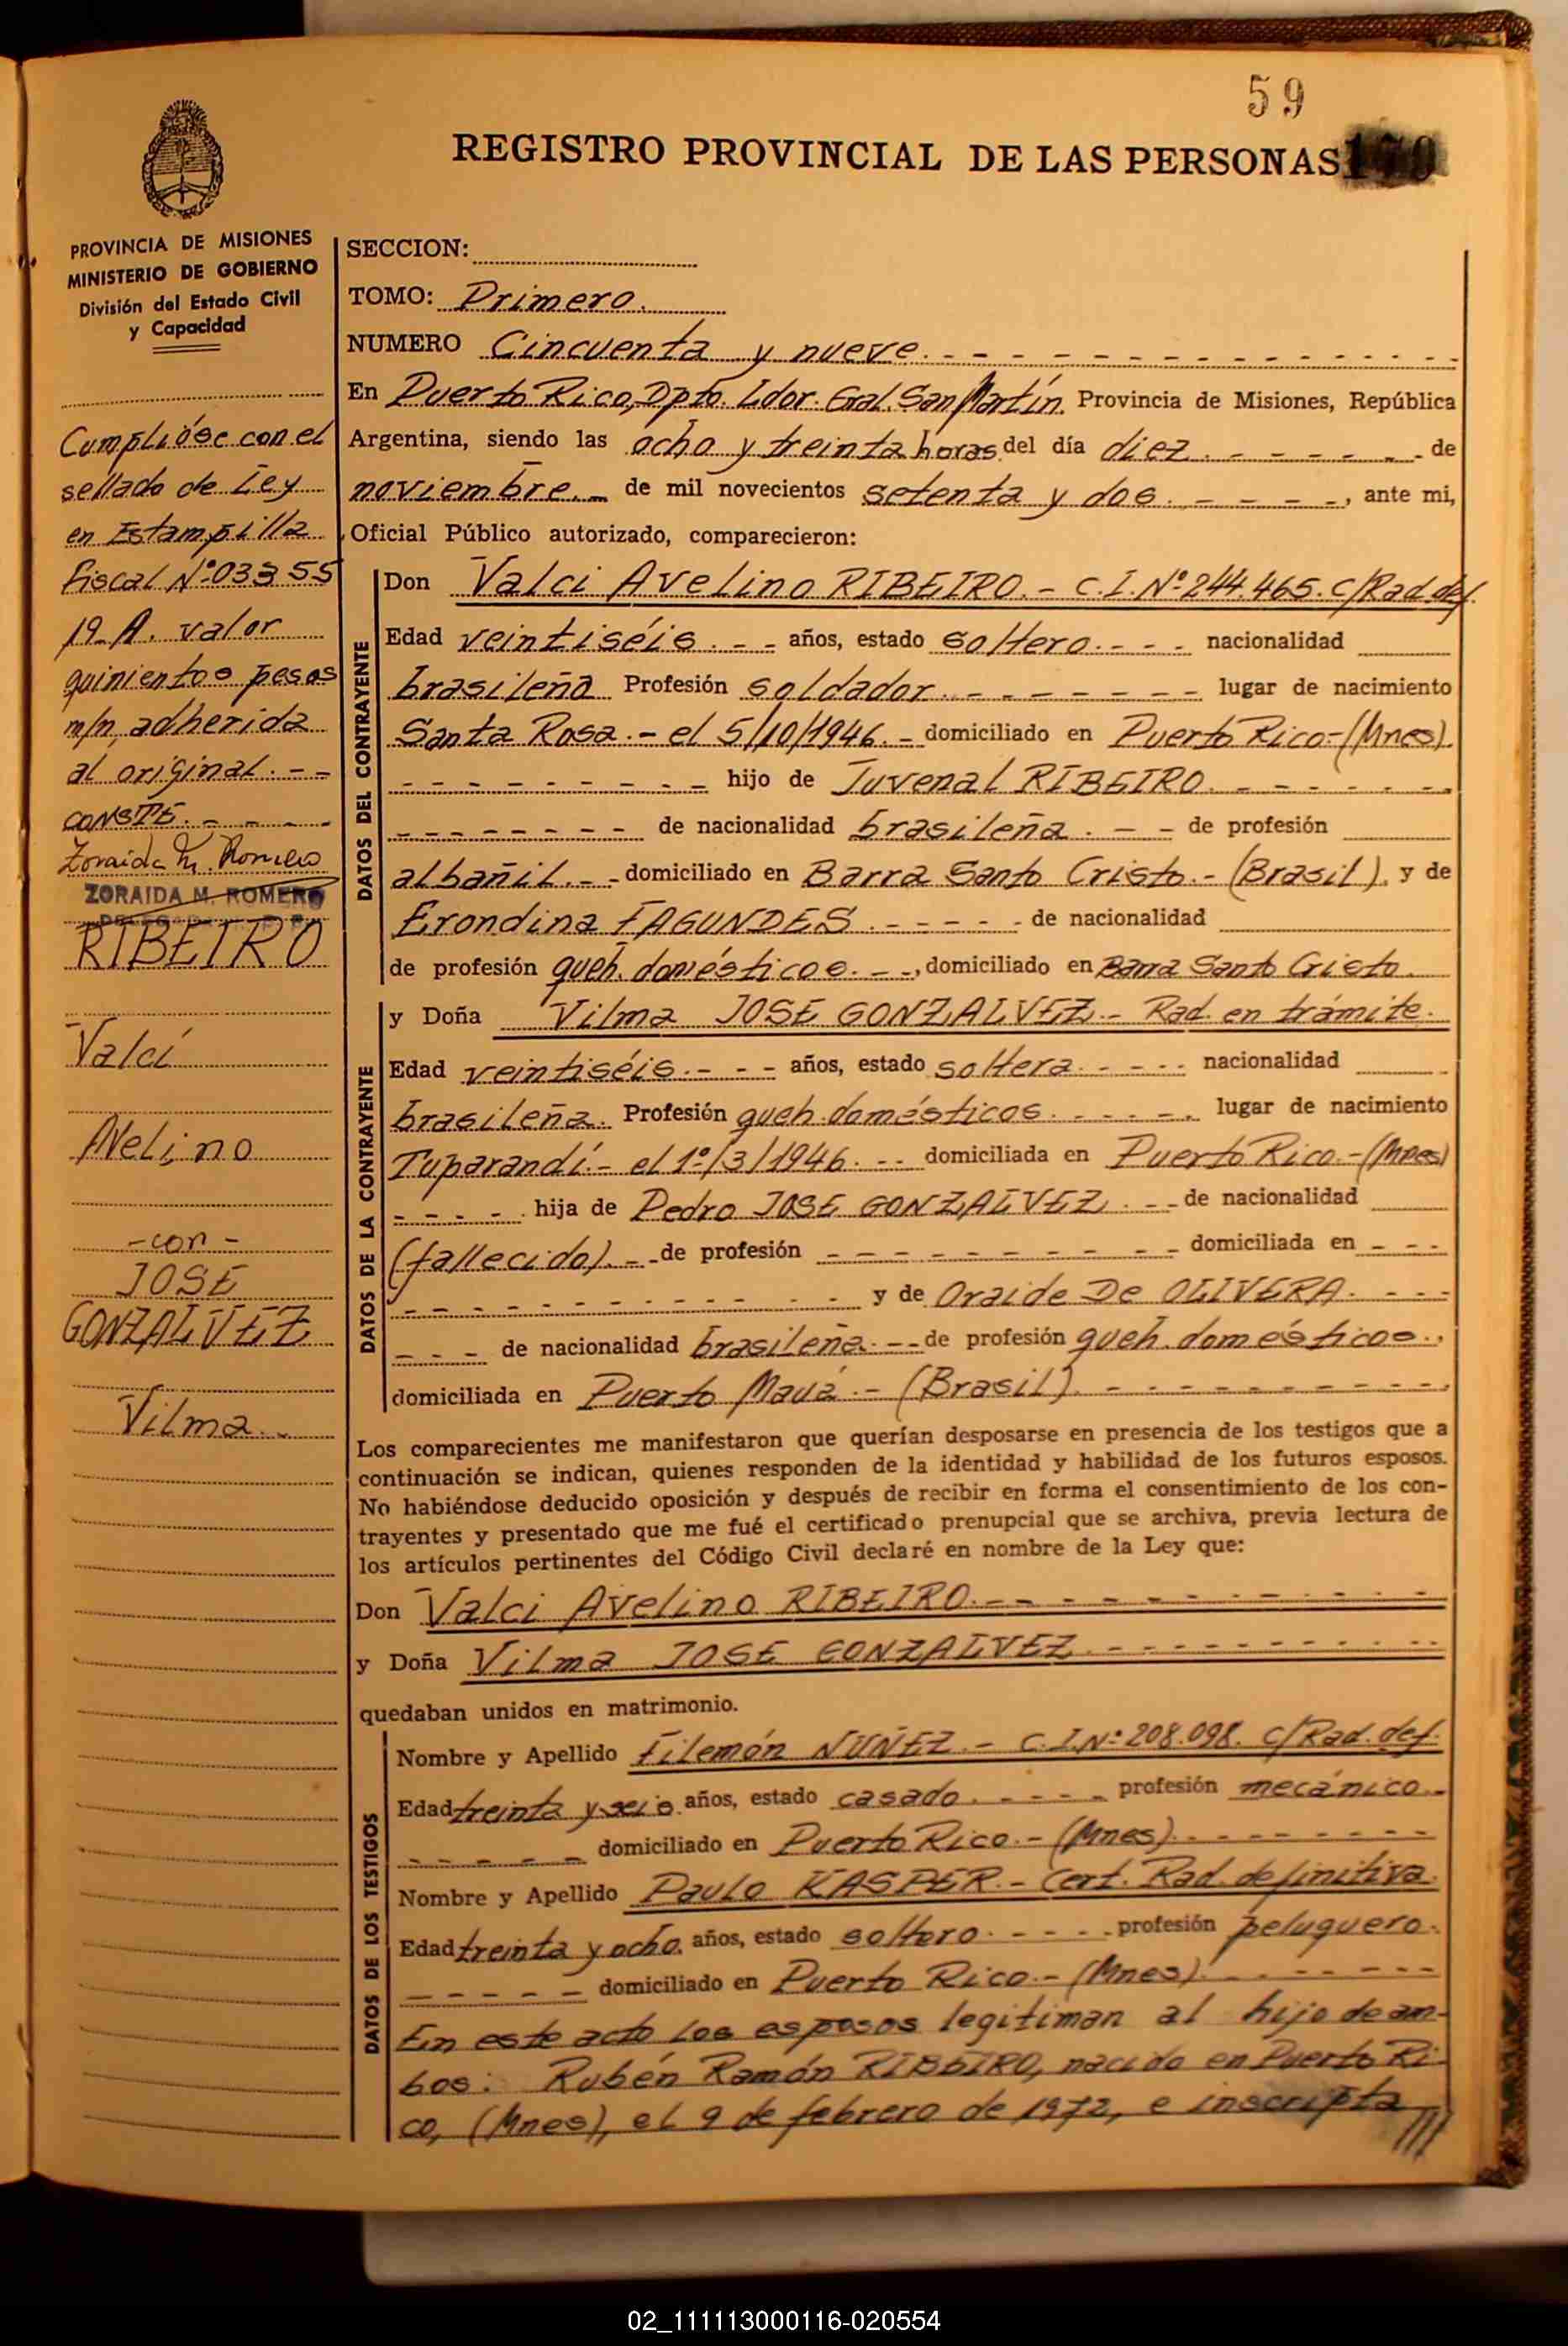 59
REGISTRO PROVINCIAL DE LAS PERSONAS 170
PROVINCIA DE MISIONES
MINISTERIO DE GOBIERNO
División del Estado Civil
y Capacidad
Cumplióse con el
sellado de Ley
en Estampilla
fiscal Nº 03355
19-A. valor
quinientos pesos
m/n adherida
al original. - -
CONSTE. - - - -
Zoraida M. Romero
ZORAIDA M. ROMERO
RIBEIRO
Valci
Avelino
- con -
JOSE
GONZALVEZ
Vilma.-
SECCION:
TOMO: Primero.
NUMERO Cincuenta y nueve. - - - - - - - - - - - - - -
En Puerto Rico, Dpto. Ldor. Gral. San Martín. Provincia de Misiones, República
Argentina, siendo las ocho y treinta horas del día diez. - - - - - - de
noviembre. - de mil novecientos setenta y dos. - - - -, ante mi,
Oficial Público autorizado, comparecieron:
DATOS DEL CONTRAYENTE
Don Valci Avelino RIBEIRO. - C.I.Nº 244.465. C/Rad.def.
Edad veintiséis. - - años, estado soltero. - - - nacionalidad
brasileña Profesión soldador. - - - - - - - lugar de nacimiento
Santa Rosa. - el 5/10/1946. - domiciliado en Puerto Rico- (Mnes).
- - - - - - - - - hijo de Juvenal RIBEIRO. - - - - - -
- - - - - - - - de nacionalidad brasileña. - - de profesión
albañil. - - domiciliado en Barra Santo Cristo. - (Brasil), y de
Erondina FAGUNDES. - - - - - de nacionalidad
de profesión queh. domésticos. - -, domiciliado en Barra Santo Cristo.
DATOS DE LA CONTRAYENTE
y Doña Vilma JOSE GONZALVEZ. - Rad. en trámite.
Edad veintiséis. - - - años, estado soltera. - - - - nacionalidad
brasileña. Profesión queh. domésticos. - - - - -. lugar de nacimiento
Tuparandí. - el 1º/3/1946. - - domiciliada en Puerto Rico. - (Mnes)
- - - - - hija de Pedro JOSE GONZALVEZ. - - - de nacionalidad
(fallecido). - - de profesión - - - - - - - - - domiciliada en - - -
- - - - - - - - - - - - y de Oraide De OLIVERA. - - -
- - - de nacionalidad brasileña. - - de profesión queh. domésticos.,
domiciliada en Puerto Mauá. - (Brasil). - - - - - - - - - -
Los comparecientes me manifestaron que querían desposarse en presencia de los testigos que a
continuación se indican, quienes responden de la identidad y habilidad de los futuros esposos.
No habiéndose deducido oposición y después de recibir en forma el consentimiento de los con-
trayentes y presentado que me fué el certificado prenupcial que se archiva, previa lectura de
los artículos pertinentes del Código Civil declaré en nombre de la Ley que:
Don Valci Avelino RIBEIRO. - - - - - - - - - - -
y Doña Vilma JOSE GONZALVEZ. - - - - - - - - - -
quedaban unidos en matrimonio.
DATOS DE LOS TESTIGOS
Nombre y Apellido Filemón NUÑEZ. - C.I.Nº 208.098. C/Rad. def.
Edad treinta y seis. años, estado casado. - - - - profesión mecánico. -
- - - - - domiciliado en Puerto Rico. - (Mnes). - - - - - - -
Nombre y Apellido Paulo KASPER. - Cert. Rad. definitiva.
Edad treinta y ocho. años, estado soltero. - - - - profesión peluquero.
- - - - - domiciliado en Puerto Rico. - (Mnes). - - - - - -
En este acto los esposos legitiman al hijo de am-
bos: Rubén Ramón RIBEIRO, nacido en Puerto Ri-
co, (Mnes), el 9 de febrero de 1972, e inscripta ///
02_111113000116-020554